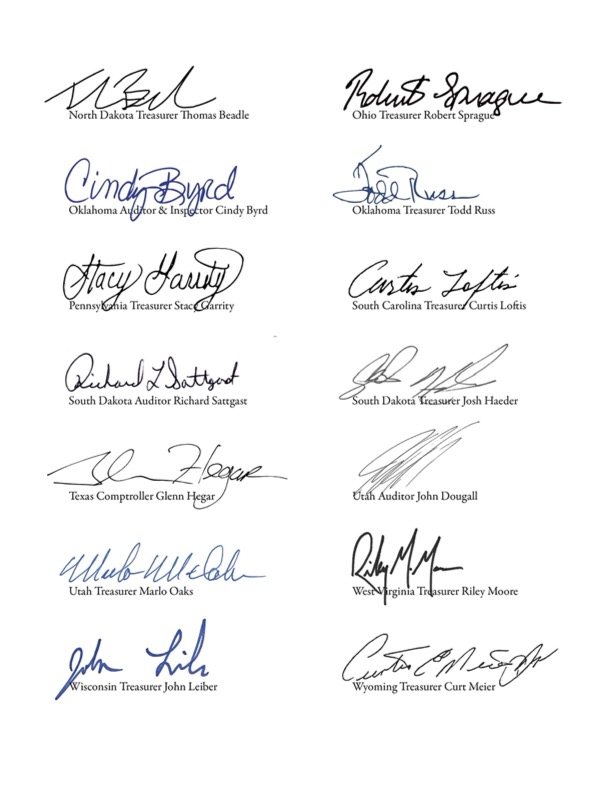 North Dakota Treasurer Thomas Beadle
Robert Sprague
Ohio Treasurer Robert Sprague
Cindy Byrd
Oklahoma Auditor & Inspector Cindy Byrd
Todd Russ
Oklahoma Treasurer Todd Russ
Stacy Garrity
Pennsylvania Treasurer Stacy Garrity
Curtis Loftis
South Carolina Treasurer Curtis Loftis
Richard L Sattgast
South Dakota Auditor Richard Sattgast
South Dakota Treasurer Josh Haeder
Hegar
Texas Comptroller Glenn Hegar
Utah Auditor John Dougall
Utah Treasurer Marlo Oaks
Riley M.
West Virginia Treasurer Riley Moore
John
Wisconsin Treasurer John Leiber
Curtis E Meier Jr
Wyoming Treasurer Curt Meier